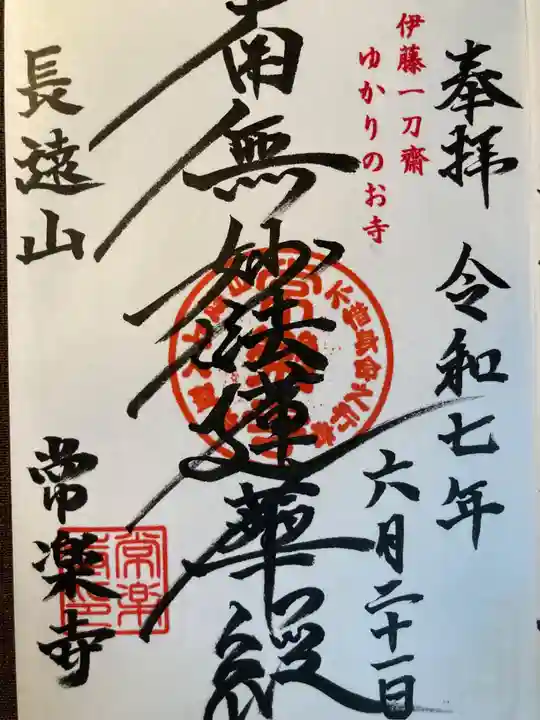 奉拝
令和七年
六月二十一日
伊藤一刀齋
ゆかりのお寺
南無妙法蓮華経
長遠山
常楽寺
常楽
寺印